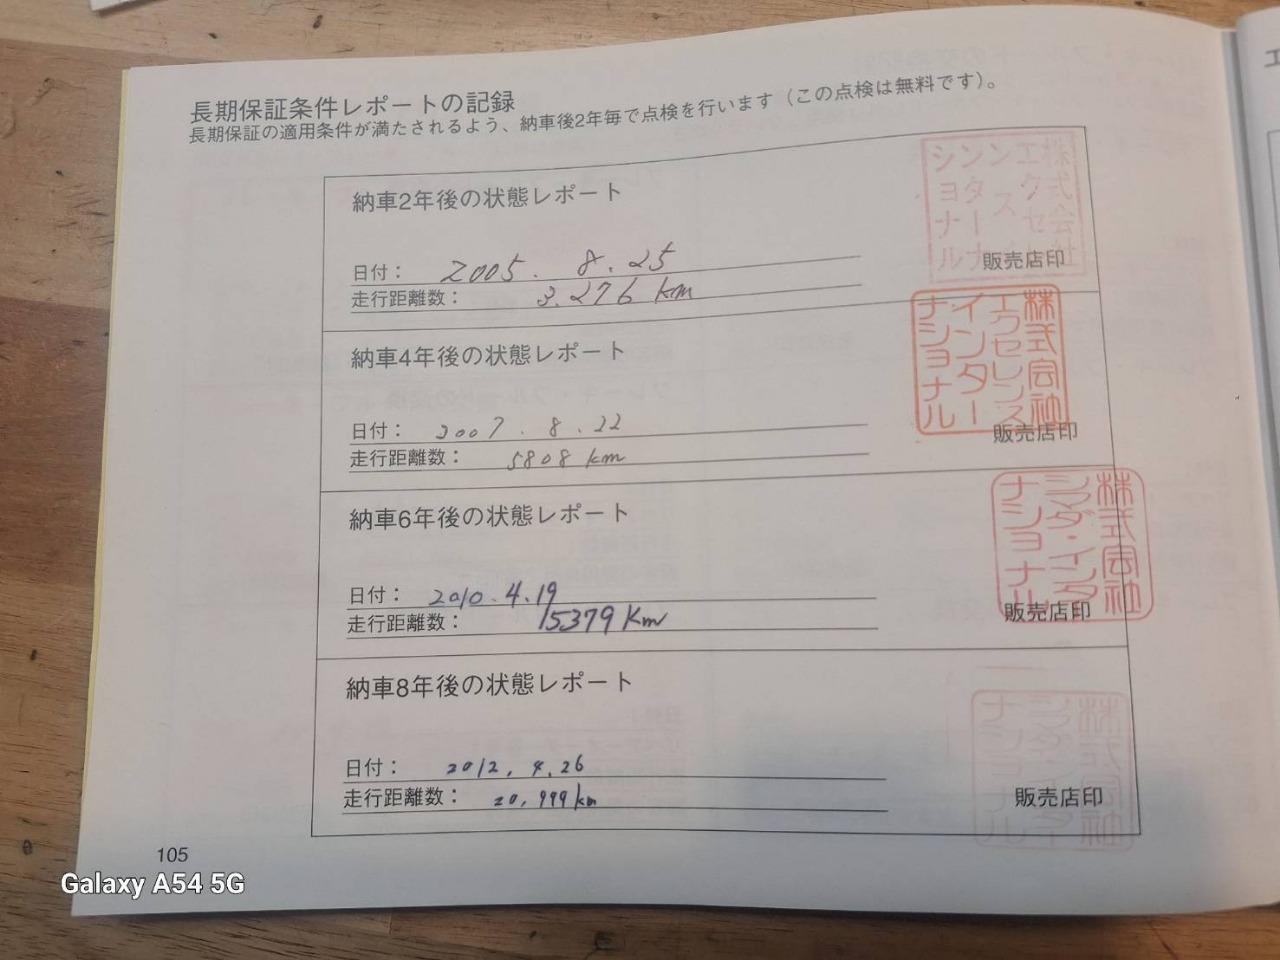 長期保証条件レポートの記録
長期保証の適用条件が満たされるよう、納車後2年毎で点検を行います（この点検は無料です）。
納車2年後の状態レポート
日付： 2005. 8. 25
走行距離数： 3.276 km
株式会社
エクセレンス
インターナショナル
販売店印
納車4年後の状態レポート
日付： 2007. 8. 22
走行距離数： 5808 km
株式会社
エクセレンス
インター
ナショナル
販売店印
納車6年後の状態レポート
日付： 2010. 4. 19
走行距離数： 15379 Km
株式会社
シマダ・インタ
ナショナル
販売店印
納車8年後の状態レポート
日付： 2012. 4. 26
走行距離数： 20,999 km
株式会社
ナショナル
販売店印
105
Galaxy A54 5G